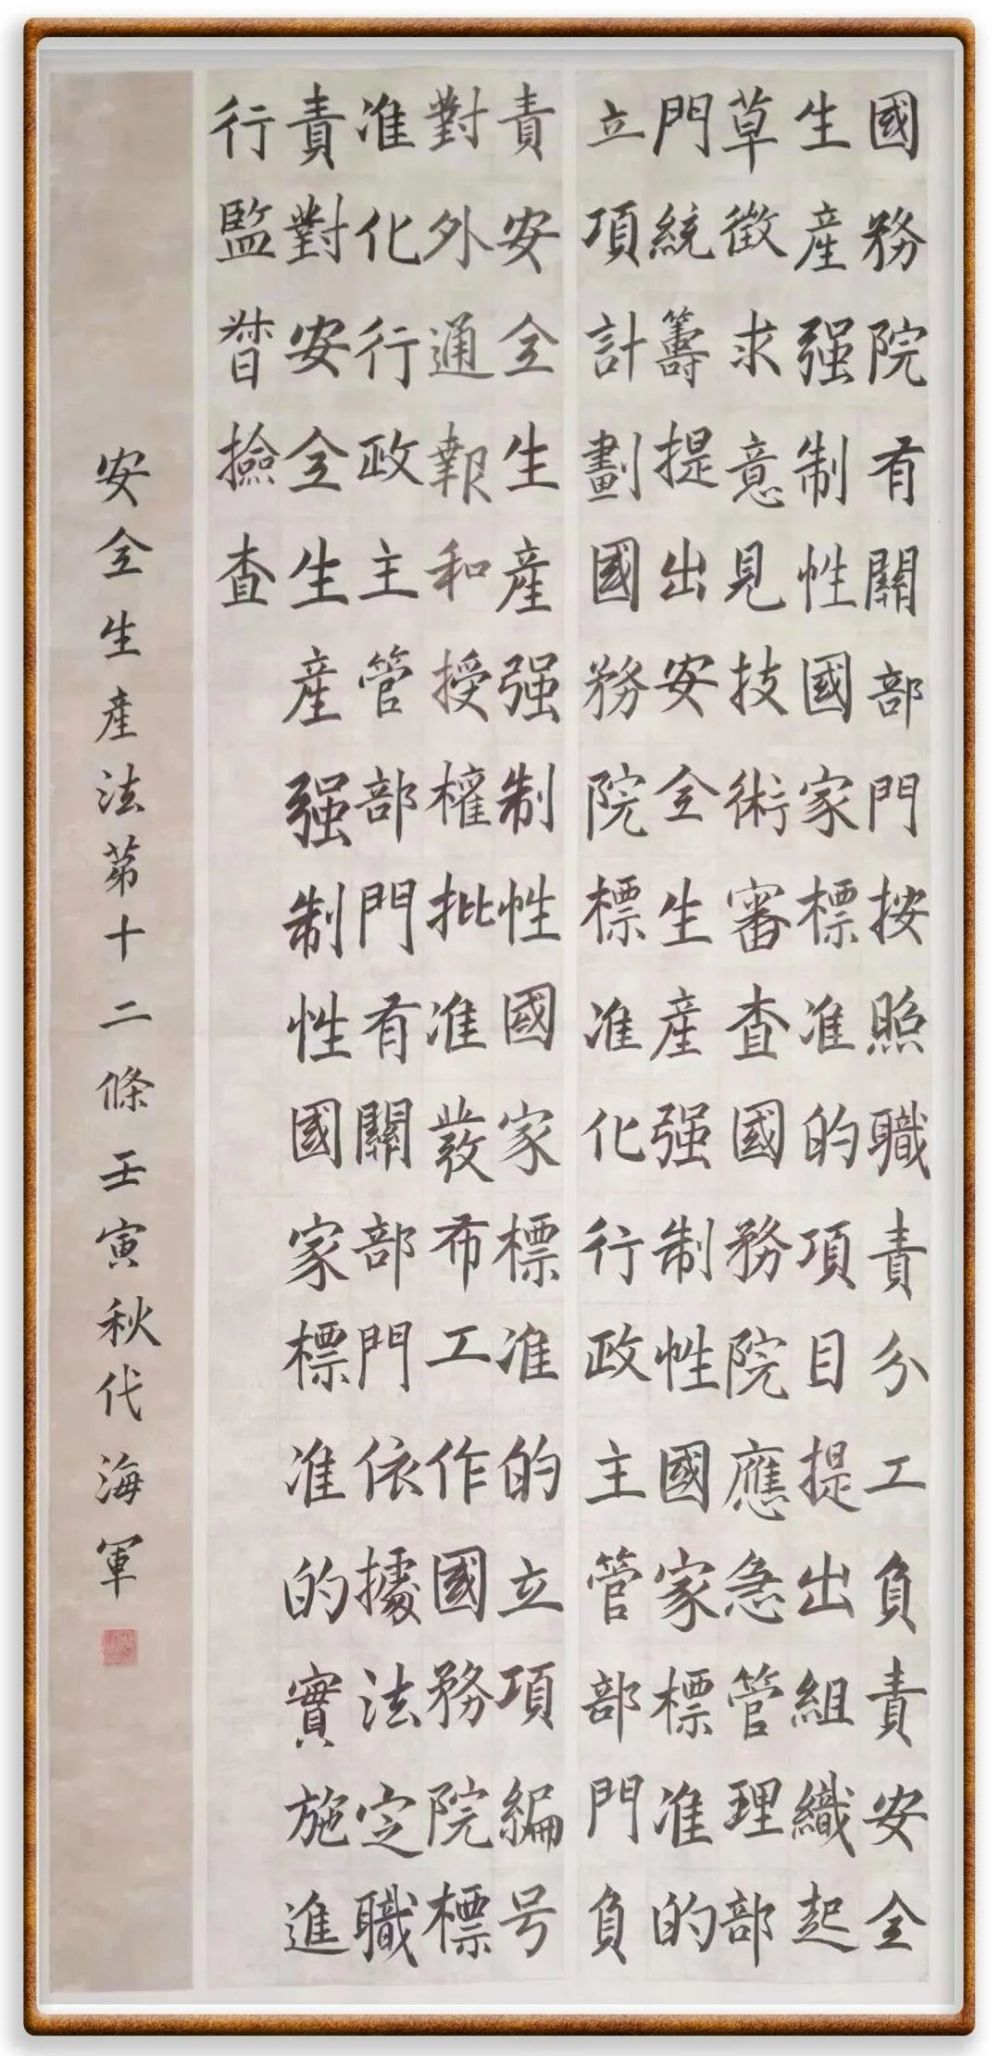 國務院有關部門按照職責分工負責安全
生産强制性國家標准的項目提出組織起
草徵求意見技術審查國務院應急管理部
門統籌提出安全生産强制性國家標准的
立項計劃國務院標准化行政主管部門負
責安全生産强制性國家標准的立項編号
對外通報和授權批准發布工作國務院標
准化行政主管部門有關部門依據法定職
責對安全生産强制性國家標准的實施進
行監督撿查
安全生産法第十二條壬寅秋代海軍